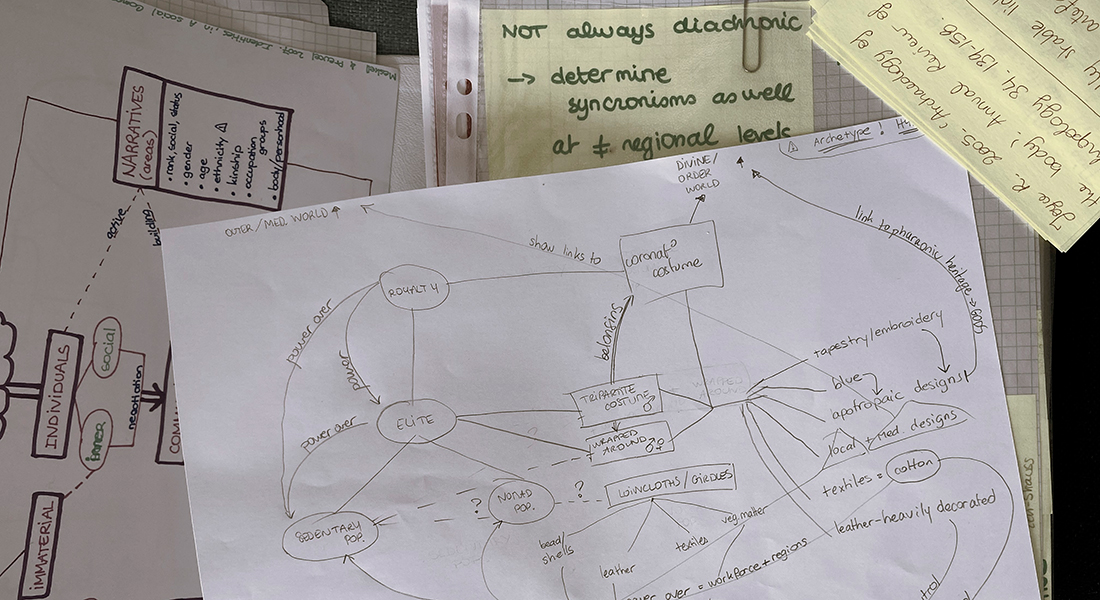 Meskell & Preucel 2007. Identities, in A social
NARRATIVES
(areas)
• rank, social, status
• gender
• age
• ethnicity ⚠
• kinship
• occupation groups
• body/personhood
active
building
INDIVIDUALS
social
inner
negotiation
IMMATERIAL
NOT always diachronic
→ determine
syncronisms as well
at ≠ regional levels
Joyce R. 2005, 'Archaeology of
the body', Annual Review of
34, 139-158.
stable
⚠ Archetype!
OUTER / MED. WORLD
DIVINE/
ORDER
WORLD
show links to
link to pharaonic heritage → GODS
coronat°
costume
ROYALTY
power over
power
belonging
tapestry/embroidery
TRIPARTITE
COSTUME ♂
WRAPPED
AROUND
blue
apotropaic designs
ELITE
power over
WRAPPED
AROUND ♂♀
local + Med. designs
textiles = cotton
NOMAD
POP.
?
?
LOINCLOTHS/GIRDLES
SEDENTARY
POP.
leather-heavily decorated
bead/
shells
leather
textiles
veg. matter
power over = workforce + regions